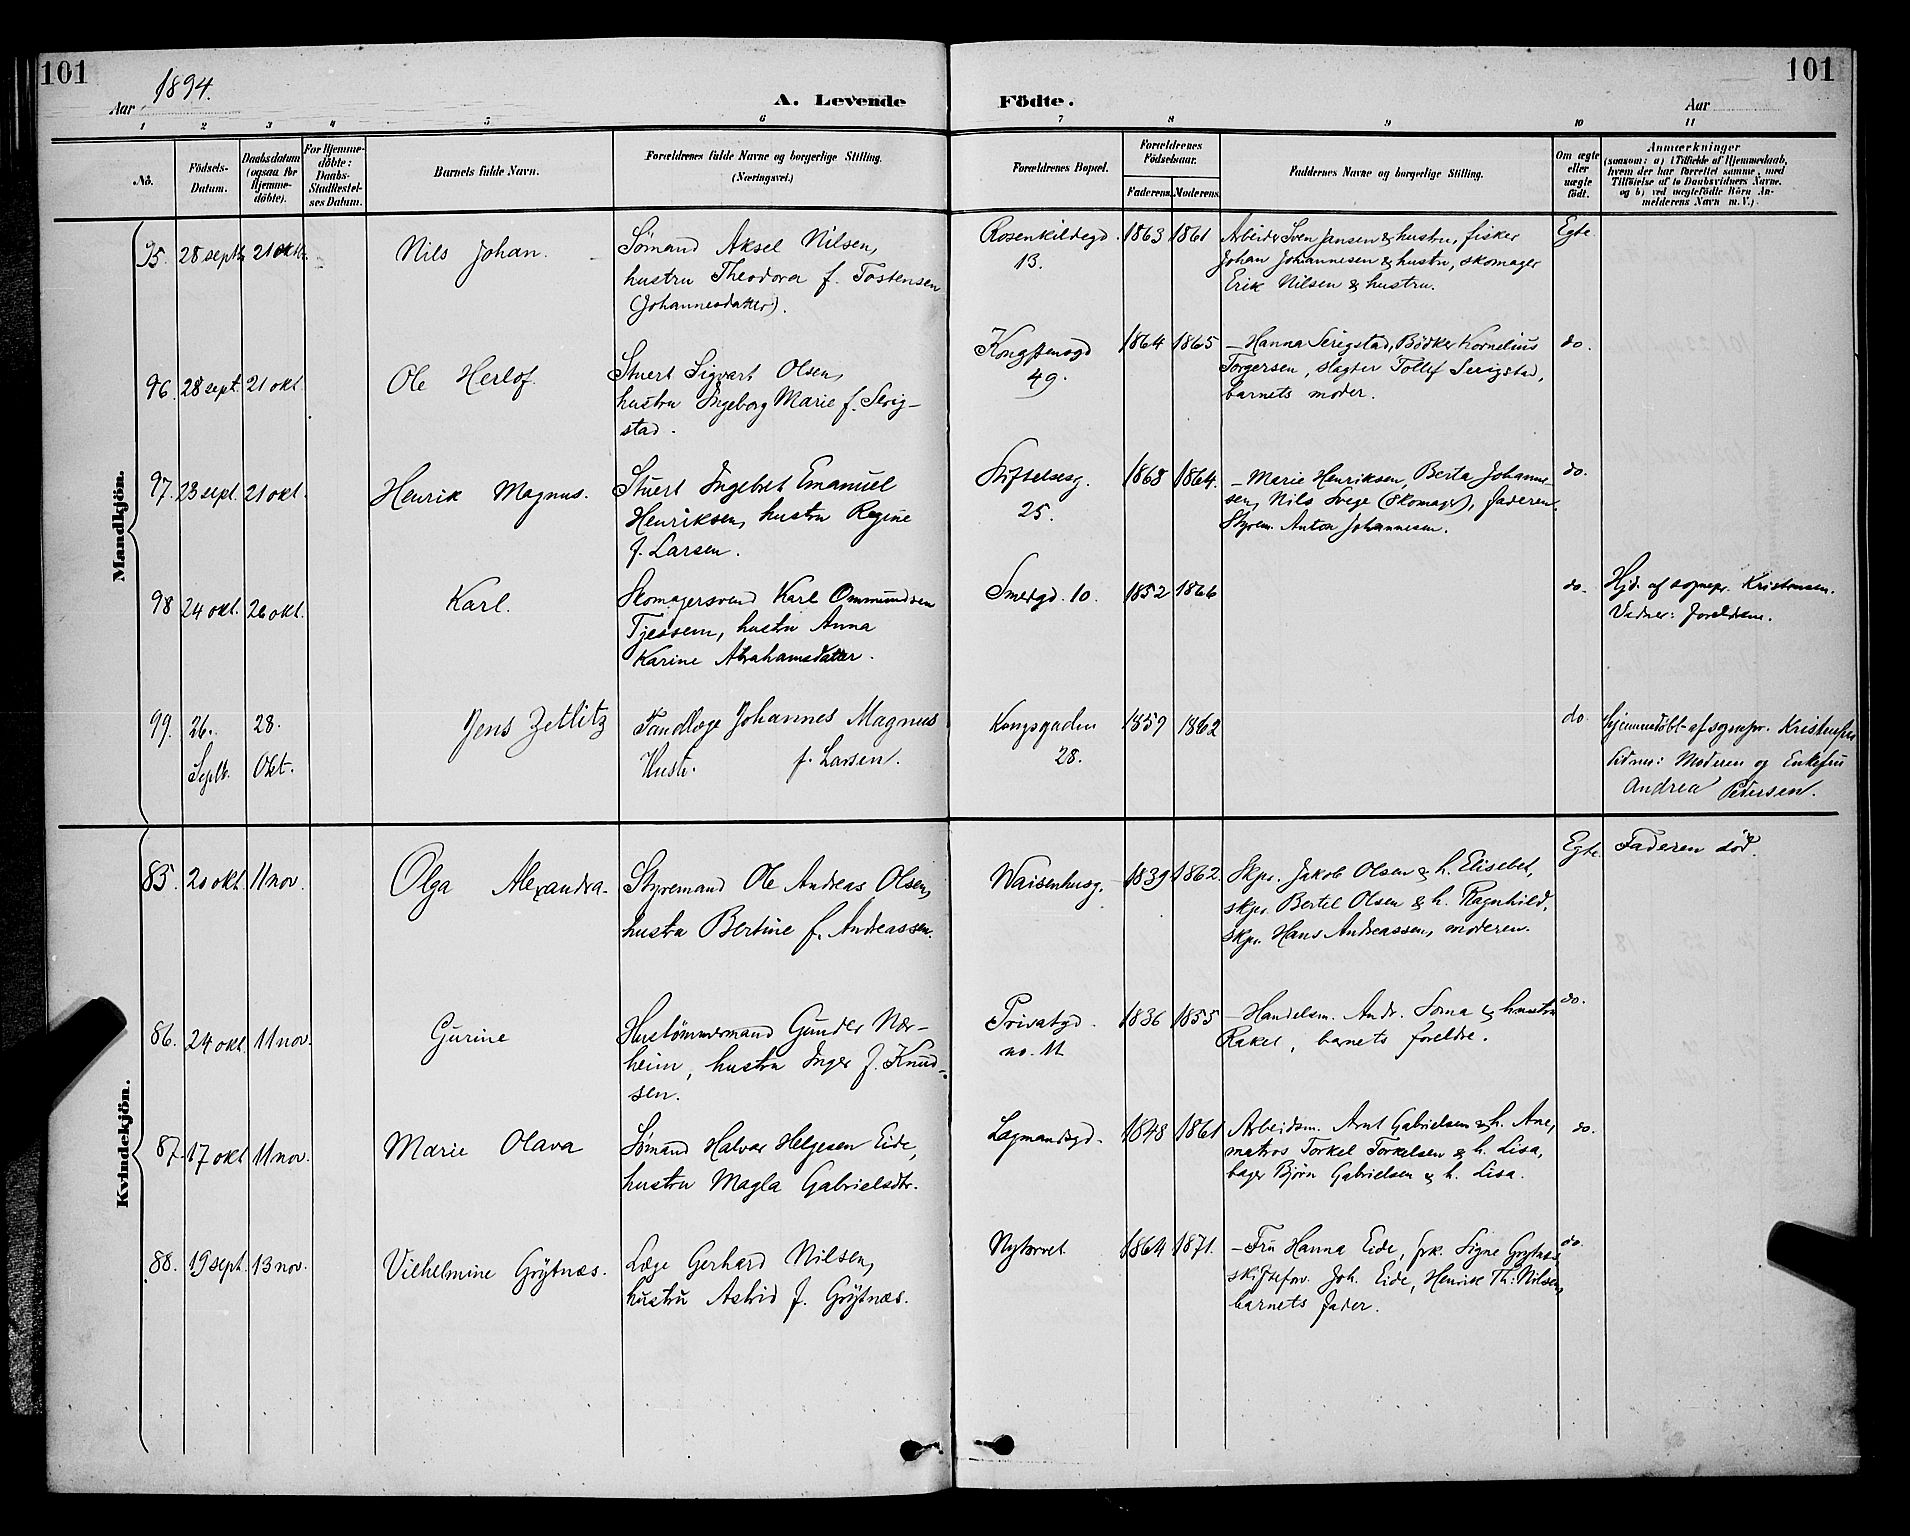 101
101
Aar 1894.
A. Levende
Födte.
Aar
1 2 3 4 5 6 7 8 9 10 11
No.
Födsels-
Datum.
Daabsdatum
(ogsaa for
Hjemme-
döbte).
For Hjemme-
döbte:
Daabs-
Stadfæstel-
ses Datum.
Barnets fulde Navn.
Forældrenes fulde Navne og borgerlige Stilling.
(Næringsvei.)
Forældrenes Bopæl.
Forældrenes
Födselsaar.
Faderens. Moderens.
Faddernes Navne og borgerlige Stilling.
Om ægte
eller
uægte
födt.
Anmærkninger
(saasom: a) i Tilfælde af Hjemmedaab,
hvem der har forrettet samme, med
Tilföielse af to Daabsvidners Navne.
og b) ved uægtefödte Börn An-
melderens Navn m. V.).
Mandkjön.
95. 28 septb. 21 oktb. Nils Johan. Sømand Aksel Nilsen,
hustru Theodora f. Tostensen
(Johannesdatter).
Rosenkildegd. 1863 1861
13.
Arbeider Sven Jansen & hustru, fisker
Johan Johannesen & hustru, skomager
Erik Nilsen & hustru.
Egte.
96. 28 sept. 21 okt Ole Herlof. Stuert Sigvart Olsen,
hustru Ingeborg Marie f. Serig-
stad.
49. 1864 1865
– Hanna Serigstad, Bødker Kornelius
Torgersen, slagter Tollef Serigstad,
barnets moder.
do.
97. 23 sept. 21 okt. Henrik Magnus. Stuert Ingebret Emanuel
Henriksen, hustru Regine
f. Larsen.
Stiftelsesg. 1868 1864.
25.
– Marie Henriksen, Berta Johanne-
sen, Nils Svege (skomager), faderen
Styrem. Anton Johannesen.
do.
98 24 okt. 26 okt. Karl. Skomagersvend Karl Ommundsen
Tjessem, hustru Anna
Karine Abrahamsdatter.
Smedgd. 10. 1852 1866
do.
Hjd. af sognepr. Kristensen.
Vidner: foreldrene.
99. 26. 28. Jens Zetlitz Tandlæge Johannes Magnus
Septb. Okt. Hustr. f. Larsen.
Kongsgaden 1857 1862
28.
do.
Hjemmedöbt af sognepr. Kristensen
Vidner: Moderen og Enkefru
Andrea Pedersen.
Kvindekjön.
85. 20 okt. 11 nov. Olga Alexandra. Styremand Ole Andreas Olsen,
hustru Bertine f. Andreassen.
Waisenhusg. 1839 1862.
Skpr. Jakob Olsen & h. Elisebet,
skpr. Bertel Olsen & h. Ragnhild,
skpr. Hans Andreassen, moderen.
Egte. Faderen död.
86. 24 okt. 11 nov. Gurine Hustømmermand Gunder Nær-
heim, hustru Inger f. Knud-
sen.
Privatgd. 1836 1855
no. 11
– Handelsm. Andr. Soma & hustru
Rakel, barnets foreldre.
do.
87. 17 okt 11 nov. Marie Olava Sømand Halvar Helgesen Eide,
hustru Magla Gabrielsdtr.
Lagmandsgd. 1848 1861
Arbeidsm. Arnt Gabrielsen & h. Ane,
matros Torkel Torkelsen & h. Lisa,
bager Björn Gabrielsen & h. Lisa.
do.
88. 19 sept. 13 nov. Vilhelmine Gröjtnæs. Læge Gerhard Nilsen,
hustru Astrid f. Gröjtnæs.
Nytorvet 1864 1871.
– Fru Hanna Eide, frk. Signe Gröjtnæs,
Joh. Eide, Henrik Th. Nilsen,
barnets fader.
do.